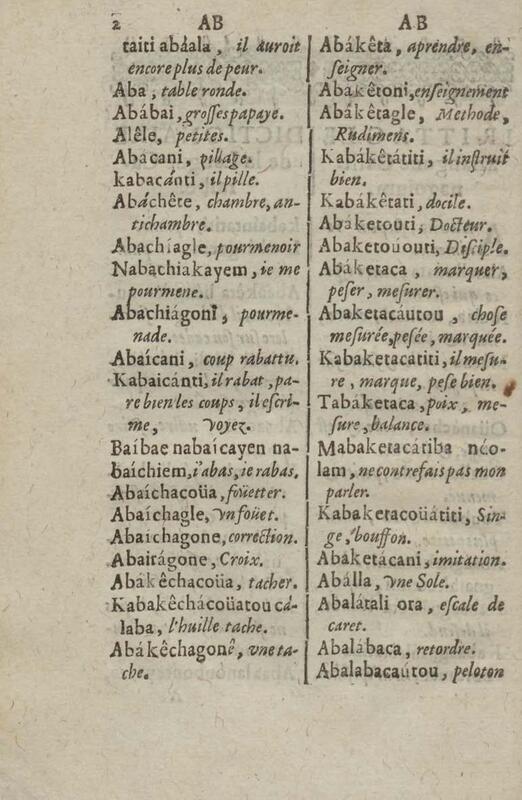 2 AB AB
taiti abáala, il auroit
encore plus de peur.
Aba, table ronde.
Abábai, grosses papaye.
Alêle, petites.
Abácani, pillage.
kabacánti, il pille.
Abáchête, chambre, an-
tichambre.
Abachíagle, pourmenoir
Nabachiakayem, ie me
pourmene.
Abachiágoni, pourme-
nade.
Abaícani, coup rabattu.
Kabaicánti, il rabat, pa-
re bien les coups, il escri-
me, voyez.
Baíbae nabaícayen na-
baíchiem, i'abas, ie rabas.
Abaíchacoüa, foüetter.
Abaíchagle, vn foüet.
Abaichagone, correction.
Abairágone, Croix.
Abákêchacoüa, tacher.
Kabakêchácoüatou cá-
laba, l'huille tache.
Abákêchagonê, vne ta-
che.
Abákêta, aprendre, en-
seigner.
Abakêtoni, enseignement
Abákêtagle, Methode,
Rudimens.
Kabákêtátiti, il instruit
bien.
Kabákétati, docile.
Abáketouti, Docteur.
Abaketoüouti, Disciple.
Abáketaca, marquer,
peser, mesurer.
Abaketacáutou, chose
mesurée, pesée, marquée.
Kabaketacatiti, il mesu-
re, marque, pese bien.
Tabáketaca, poix, me-
sure, balance.
Mabaketacátiba néo-
lam, ne contrefais pas mon
parler.
Kabaketacoüátiti, Sin-
ge, bouffon.
Abaketácani, imitation.
Abálla, vne Sole.
Abalátali ora, escale de
caret.
Abalábaca, retordre.
Abalabacaútou, peloton